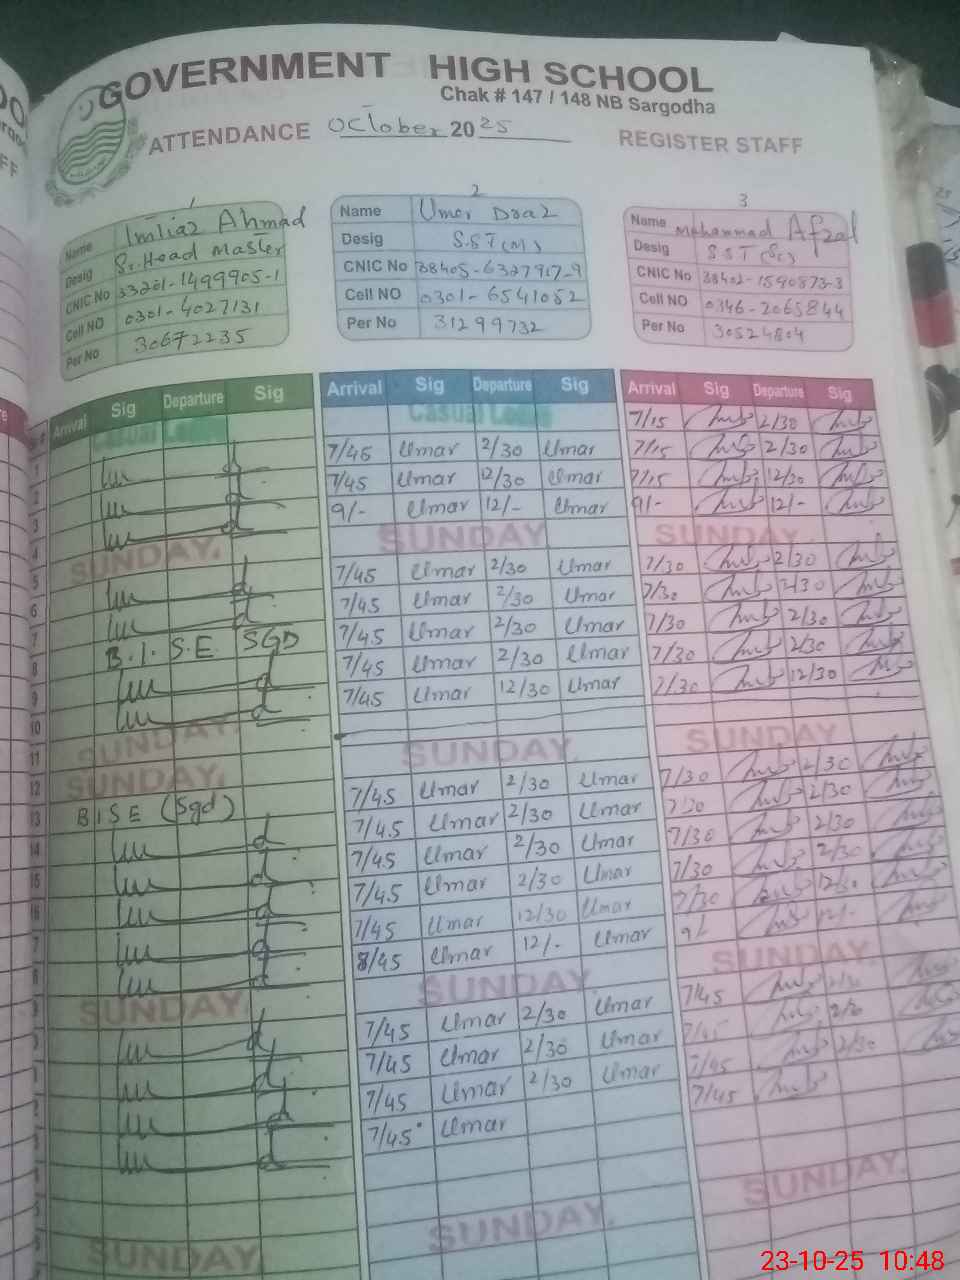 GOVERNMENT HIGH SCHOOL
Chak # 147 / 148 NB Sargodha
ATTENDANCE October 2025 REGISTER STAFF
1
Name Imtiaz Ahmad
Desig Sr. Head Master
CNIC No 33201-1499905-1
Cell NO 0301-4027131
Per No 30672235
2
Name Umer Daaz
Desig S.S.T (M)
CNIC No 38405-6327917-9
Cell NO 0301-6541052
Per No 31299732
3
Name Mohammad Afzal
Desig S.S.T (Sc)
CNIC No 38402-1590873-3
Cell NO 0346-2065844
Per No 30524804
Arrival Sig Departure Sig Arrival Sig Departure Sig Arrival Sig Departure Sig
Casual Leave Casual Leave 7/15 2/30
1 7/45 Umar 2/30 Umar 7/15 2/30
2 7/45 Umar 12/30 Umar 7/15 12/30
3 9/- Umar 12/- Umar 9/- 12/-
4 SUNDAY SUNDAY SUNDAY
5 7/45 Umar 2/30 Umar 7/30 2/30
6 7/45 Umar 2/30 Umar 7/30 2/30
7 B.I.S.E. SGD 7/45 Umar 2/30 Umar 7/30 2/30
8 7/45 Umar 2/30 Umar 7/30 2/30
9 7/45 Umar 12/30 Umar 7/30 12/30
10
11 SUNDAY SUNDAY SUNDAY
12 SUNDAY 7/45 Umar 2/30 Umar 7/30 2/30
13 BISE (Sgd) 7/45 Umar 2/30 Umar 7/30 2/30
14 7/45 Umar 2/30 Umar 7/30 2/30
15 7/45 Umar 2/30 Umar 7/30 2/30
16 7/45 Umar 12/30 Umar 7/30 12/30
7 8/45 Umar 12/- Umar 9/- 12/-
SUNDAY SUNDAY SUNDAY
7/45 Umar 2/30 Umar 7/45 2/30
7/45 Umar 2/30 Umar 7/45
7/45 Umar 2/30 Umar 7/45 2/30
7/45 Umar 7/45
SUNDAY SUNDAY SUNDAY
23-10-25 10:48